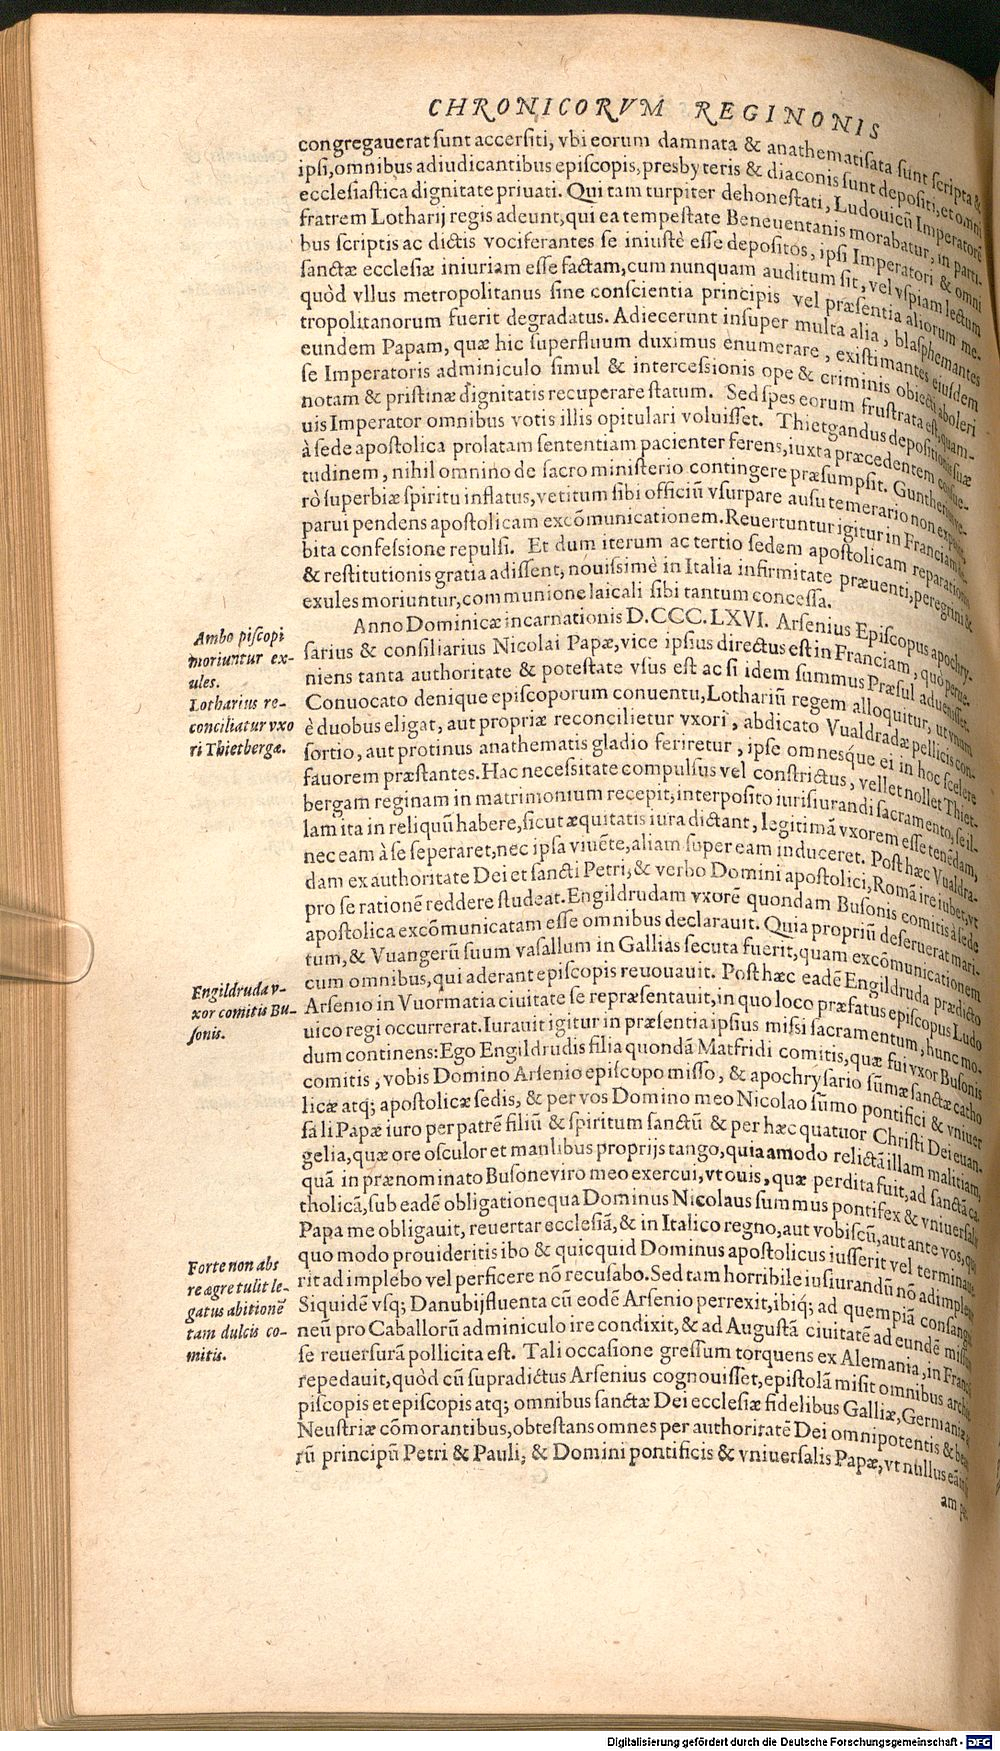 CHRONICORVM REGINONIS
congregauerat sunt accersiti, vbi eorum damnata & anathematisata sunt scripta &
ipsi, omnibus adiudicantibus episcopis, presbyteris & diaconis sunt depositi, et omni
ecclesiastica dignitate priuati. Qui tam turpiter dehonestati, Ludouicũ Imperatorẽ
fratrem Lotharij regis adeunt, qui ea tempestate Beneuentanis morabatur, in parti-
bus scriptis ac dictis vociferantes se iniustè esse depositos, ipsi Imperatori & omni
sanctæ ecclesiæ iniuriam esse factam, cum nunquam auditum sit, vel vspiam lectum
quòd vllus metropolitanus sine conscientia principis vel præsentia aliorum me-
tropolitanorum fuerit degradatus. Adiecerunt insuper multa alia, blasphemantes
eundem Papam, quæ hic superfluum duximus enumerare, existimantes eiusdem
se Imperatoris adminiculo simul & intercessionis ope & criminis obiecti aboleri
notam & pristinæ dignitatis recuperare statum. Sed spes eorum frustrata est, quam-
uis Imperator omnibus votis illis opitulari voluisset. Thietgandus depositionis suæ
à sede apostolica prolatam sententiam pacienter ferens, iuxta præcedentem consue-
tudinem, nihil omnino de sacro ministerio contingere præsumpsit. Guntherius ve-
rò superbiæ spiritu inflatus, vetitum sibi officiũ vsurpare ausu temerario non expauit,
parui pendens apostolicam excõmunicationem. Reuertuntur igitur in Franciam
bita confessione repulsi. Et dum iterum ac tertio sedem apostolicam reparationis
& restitutionis gratia adissent, nouissimè in Italia infirmitate præuenti, peregrini &
exules moriuntur, communione laicali sibi tantum concessa.
Anno Dominicæ incarnationis D.CCC.LXVI. Arsenius Episcopus apochry-
sarius & consiliarius Nicolai Papæ, vice ipsius directus est in Franciam, quò perue-
niens tanta authoritate & potestate vsus est ac si idem summus Præsul aduenisset.
Conuocato denique episcoporum conuentu, Lothariũ regem alloquitur, vt vnum
è duobus eligat, aut propriæ reconcilietur vxori, abdicato Vualdradæ pellicis con-
sortio, aut protinus anathematis gladio feriretur, ipse omnesque ei in hoc scelere
fauorem præstantes. Hac necessitate compulsus vel constrictus, vellet nollet Thiet-
bergam reginam in matrimonium recepit, interposito iurisiurandi sacramento, se il-
lam ita in reliquũ habere, sicut æquitatis iura dictant, legitimã vxorem esse tenẽdam,
nec eam à se seperaret, nec ipsa viuẽte, aliam super eam induceret. Post hæc Vualdra-
dam ex authoritate Dei et sancti Petri, & verbo Domini apostolici, Romã ire iubet, vt
pro se rationẽ reddere studeat. Engildrudam vxorẽ quondam Busonis comitis à sede
apostolica excõmunicatam esse omnibus declarauit. Quia propriũ deseruerat mari-
tum, & Vuangerũ suum vasallum in Gallias secuta fuerit, quam excõmunicationem
cum omnibus, qui aderant episcopis reuouauit. Post hæc eadẽ Engildruda prædicto
Arsenio in Vuormatia ciuitate se repræsentauit, in quo loco præfatus episcopus Ludo
uico regi occurrerat. Iurauit igitur in præsentia ipsius missi sacramentum, hunc mo-
dum continens: Ego Engildrudis filia quondã Matfridi comitis, quæ fui vxor Busonis
comitis, vobis Domino Arsenio episcopo misso, & apochrysario sũmæ sanctæ catho
licæ atq; apostolicæ sedis, & per vos Domino meo Nicolao sũmo pontifici & vniuer
sali Papæ iuro per patrẽ filiũ & spiritum sanctũ & per hæc quatuor Christi Dei euan-
gelia, quæ ore osculor et manibus proprijs tango, quia amodo relictã illam malitiam,
quã in prænominato Busone viro meo exercui, vt ouis, quæ perdita fuit, ad sanctã ca-
tholicã, sub eadẽ obligatione qua Dominus Nicolaus summus pontifex & vniuersalis
Papa me obligauit, reuertar ecclesiã, & in Italico regno, aut vobiscũ, aut ante vos, qui
quo modo prouideritis ibo & quicquid Dominus apostolicus iusserit vel terminaue
rit ad implebo vel perficere nõ recusabo. Sed tam horribile iusiurandũ nõ adimpleuit
Siquidẽ vsq; Danubij fluenta cũ eodẽ Arsenio perrexit, ibiq; ad quempiã consangui
neũ pro Caballorũ adminiculo ire condixit, & ad Augustã ciuitatẽ ad eundẽ missum
se reuersurã pollicita est. Tali occasione gressum torquens ex Alemania, in Franci
repedauit, quòd cũ supradictus Arsenius cognouisset, epistolã misit omnibus archie
piscopis et episcopis atq; omnibus sanctæ Dei ecclesiæ fidelibus Galliæ, Germaniæ &
Neustriæ cõmorantibus, obtestans omnes per authoritatẽ Dei omnipotentis & beato
rũ principũ Petri & Pauli, & Domini pontificis & vniuersalis Papæ, vt nullus eã
am
Ambo piscopi
moriuntur ex-
ules.
Lotharius re-
conciliatur vxo
ri Thietbergæ.
Engildruda v-
xor comitis Bu-
sonis.
Forte non abs
re ægre tulit le-
gatus abitionẽ
tam dulcis co-
mitis.
Digitalisierung gefördert durch die Deutsche Forschungsgemeinschaft - DFG